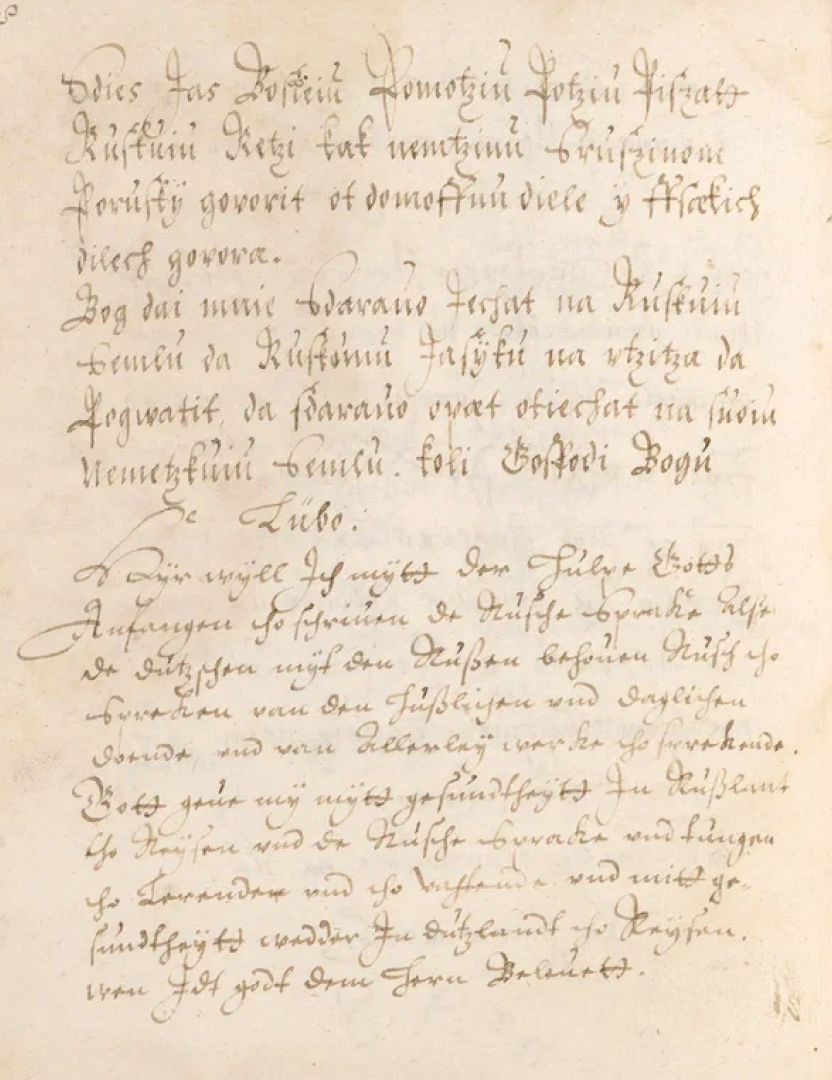 Sdies Jas Bosieiu Pomotziu Potziu Piszatt
Ruskuiu Retzi kak nemtzinu Sruszinom
Porusky̎ govorit ot domoffnu diele y ffsækich
dilech govora.
Bog dai mnie Sdarauo Jechat na Ruskuiu
Semlu da Ruskomu Jasÿku na vtzitza da
Pogwatit, da sdarauo opæt otiechat na suoiu
Nemetzkuiu Semlu. koli Gospodi Bogu
Lübo.
Hÿr wÿll Ich mÿtt der Hülpe Gotts
Anfangen tho schriuen de Rusche Sprake Alse
de dützschen mÿt den Rußen behouen Rusch tho
Spreken van den hüßlichen vnd daglichen
doende, vnd van Allerleÿ wercke tho sprekende.
Gott geue mÿ mÿtt gesundtheÿtt In Rußlant
tho Reÿsen vnd de Rusche Sprake vnd tungen
tho Lerenden vnd tho vattende vnd mitt ge-
sundtheÿtt wedder In dützlandt tho Reÿsen.
wen Idt godt dem Hern Beleuett.